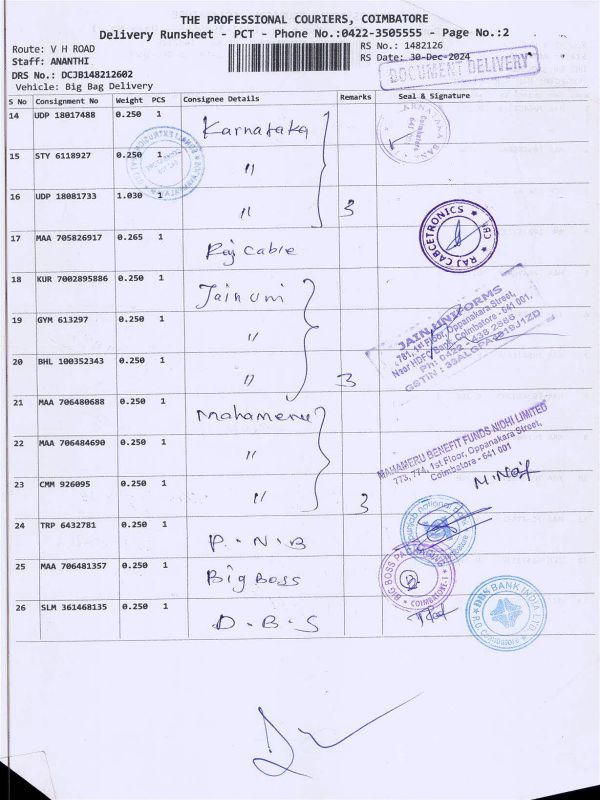 THE PROFESSIONAL COURIERS, COIMBATORE
Delivery Runsheet - PCT - Phone No.:0422-3505555 - Page No.:2
Route: V H ROAD
RS No.: 1482126
Staff: ANANTHI
RS Date: 30-Dec-2024
DOCUMENT DELIVERY
DRS No.: DCJB148212602
Vehicle: Big Bag Delivery
S No Consignment No Weight PCS Consignee Details Remarks Seal & Signature
14 UDP 18017488 0.250 1 Karnataka
15 STY 6118927 0.250 1 "
16 UDP 18081733 1.030 1 " 3
17 MAA 705826917 0.265 1 Raj Cable
RAJ CABCETRONICS CBE
18 KUR 7002895886 0.250 1 Jain uni
19 GYM 613297 0.250 1 "
20 BHL 100352343 0.250 1 " 3
JAIN UNIFORMS
781, 1st Floor, Oppanakara Street,
Near HDFC Bank, Coimbatore - 641 001.
Ph: 0422 - 438 2666
21 MAA 706480688 0.250 1 Mahameru
22 MAA 706484690 0.250 1 "
23 CMM 926095 0.250 1 " 3
MAHAMERU BENEFIT FUNDS NIDHI LIMITED
773, 774, 1st Floor, Oppanakara Street,
Coimbatore - 641 001
24 TRP 6432781 0.250 1 P.N.B
punjab national
25 MAA 706481357 0.250 1 Big Boss
BIG BOSS
COIMBATORE-1
26 SLM 361468135 0.250 1 D.B.S
DBS BANK INDIA LTD
Coimbatore